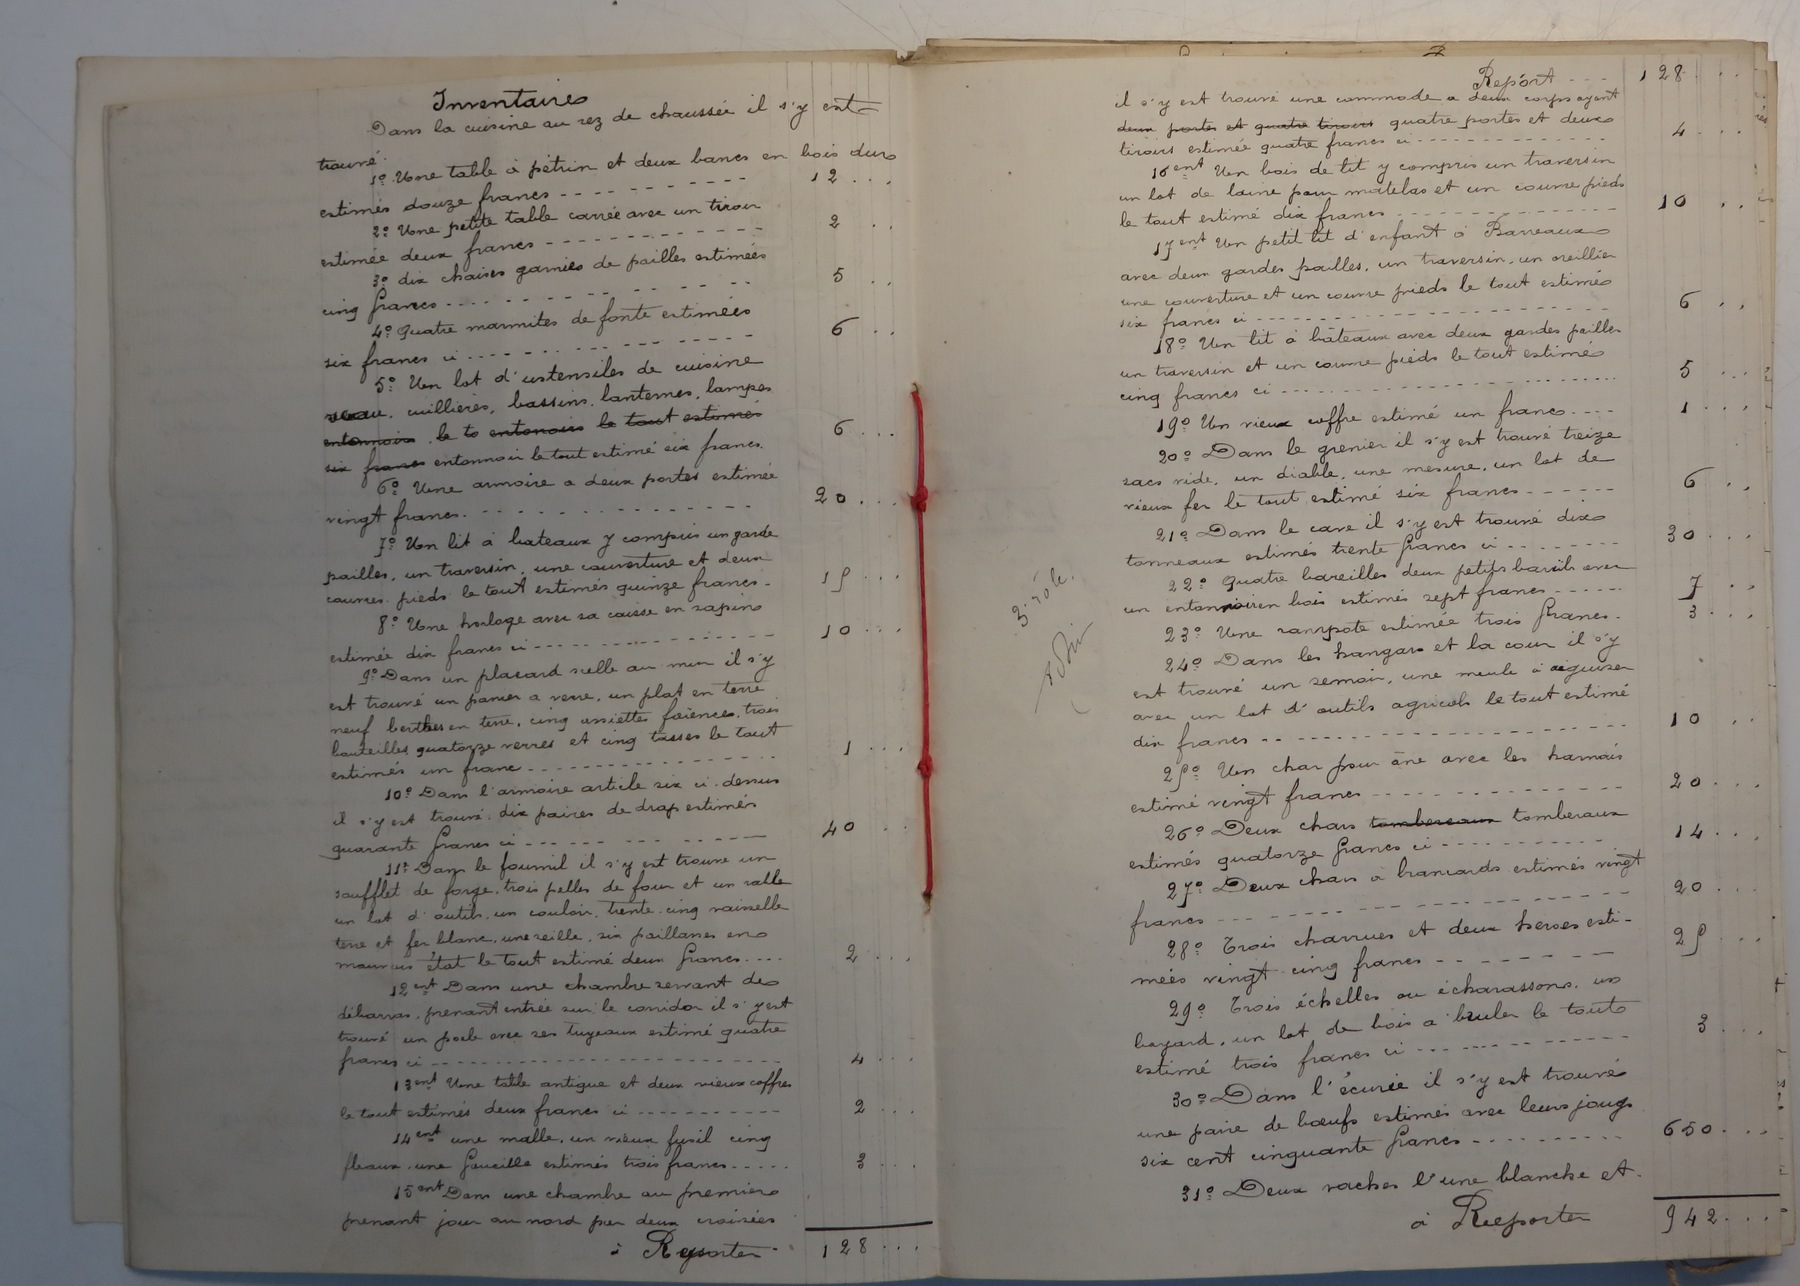 Inventaire
Dans la cuisine au rez de chaussée il s'y est
trouvé.
1º Une table à pétrin et deux bancs en bois dur
estimés douze francs - - - - - - - - - 12 . . .
2º Une petite table carrée avec un tiroir
estimée deux francs - - - - - - - - - 2 . .
3º dix chaises garnies de pailles estimées
cinq francs - - - - - - - - - 5 . .
4º Quatre marmites de fonte estimées
six francs ci - - - - - - - - - 6 . .
5º Un lot d'ustensiles de cuisine
cuillières, bassins, lanternes, lampes
entonnoirs le to entonnoirs le tout estimés
six francs entonnoir le tout estimé six francs. 6 . . .
6º Une armoire a deux portes estimée
vingt francs. - - - - - - - - - 20 . . .
7º Un lit à bateaux y compris un garde
pailles, un traversin, une couverture et deux
couvres pieds le tout estimés quinze francs - 15 . . .
8º Une horloge avec sa caisse en sapin
estimée dix francs ci - - - - - - - - - 10 . . .
9º Dans un placard scelle au mur il s'y
est trouvé un panier a verre, un plat en terre
neuf berthes en terre, cinq assiettes faïence, trois
bouteilles, quatorze verres et cinq tasses le tout
estimés un franc - - - - - - - - - 1 . . .
10º Dans l'armoire article six ci-dessus
il s'y est trouvé, dix paires de drap estimés
quarante francs ci - - - - - - - - - 40 . .
11º Dans le fournil il s'y est trouve un
soufflet de forge, trois pelles de four et un rable
un lot d'outils, un couloir, trente-cinq vaisselle
terre et fer blanc, une seille, six paillasses en
mauvais état le tout estimé deux francs . . . . 2 . . .
12ent Dans une chambre servant de
débarras, prenant entrée sur le corridor il s'y est
trouvé un poele avec ses tuyeaux estimé quatre
francs ci - - - - - - - - - 4 . . .
13ent Une table antique et deux vieux coffres
le tout estimés deux francs ci - - - - - - - - - 2 . . .
14ent une malle, un vieux fusil cinq
fleaux, une faucille estimés trois francs . . . . . 3 . . .
15ent Dans une chambre au premier
prenant jour au nord par deux croisées
à Reporter - 128 . . .
Report - - - 128 . . .
il s'y est trouvé une commode a deux corps ayant
deux portes et quatre tiroirs quatre portes et deux
tiroirs estimée quatre francs ci - - - - - - - - - 4 . . .
16ent Un bois de lit y compris un traversin
un lot de laine pour matelas et un couvre pieds
le tout estimé dix francs - - - - - - - - - 10 . .
17ent Un petit lit d'enfant à Barreaux
avec deux gardes pailles, un traversin, un oreillier
une couverture et un couvre pieds le tout estimés
six francs ci - - - - - - - - - 6 . .
18º Un lit à bâteaux avec deux gardes pailles
un traversin et un couvre pieds le tout estimés
cinq francs ci - - - - - - - - - 5 . . .
19º Un vieux coffre estimé un franc - - - - 1 . . .
20º Dans le grenier il s'y est trouvé treize
sacs vide, un diable, une mesure, un lot de
vieux fer le tout estimé six francs - - - - - - 6 . .
21º Dans le cave il s'y est trouvé dix
tonneaux estimés trente francs ci - - - - - - - - 30 . . .
22º Quatre bareilles deux petits barils avec
un entonnoir en bois estimés sept francs - - - - - - 7 . .
23º Une rampote estimée trois francs. 3 . . .
24º Dans les hangars et la cour il s'y
est trouvé un semoir, une meule à aiguiser
avec un lot d'outils agricols le tout estimé
dix francs - - - - - - - - - 10 . .
25º Un char pour âne avec les harnais
estimé vingt francs - - - - - - - - - 20 . . .
26º Deux chars tombereaux tomberaux
estimés quatorze francs ci - - - - - - - - - 14 . . .
27º Deux chars à brancards estimés vingt
francs - - - - - - - - - 20 . . .
28º Trois charrues et deux herses esti-
mées vingt cinq francs - - - - - - - 25 . . .
29º Trois échelles ou écharassons, un
bayard, un lot de bois a bruler le tout
estimé trois francs ci - - - - - - - - - 3 . . .
30º Dans l'écurie il s'y est trouvé
une paire de bœufs estimés avec leurs jougs
six cent cinquante francs - - - - - - - - - 650 . . .
31º Deux vaches l'une blanche et -
à Reporter 942 . . .
3 rôle.